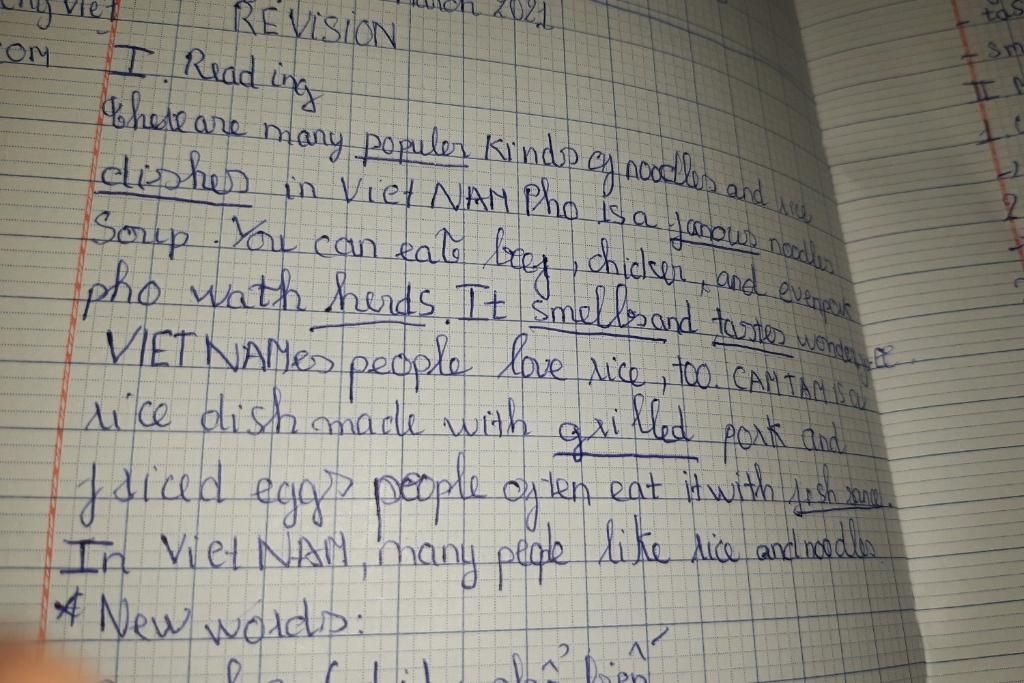 March 2021
REVISION
I. Reading
there are many populer kinds of noodles and rice
disshes in Viet NAM Pho is a famous noodles
Soup. You can eat beef, chicken, and even pork
pho wath herds. It smells and tastes
VIETNAMes people love rice, too. CAMTAM is a
rice dish made with grilled pork and
fdiced eggs people often eat it with fish
In Viet NAM, many peple like rice and noodles
* New words:
phổ biến
II
1.
2